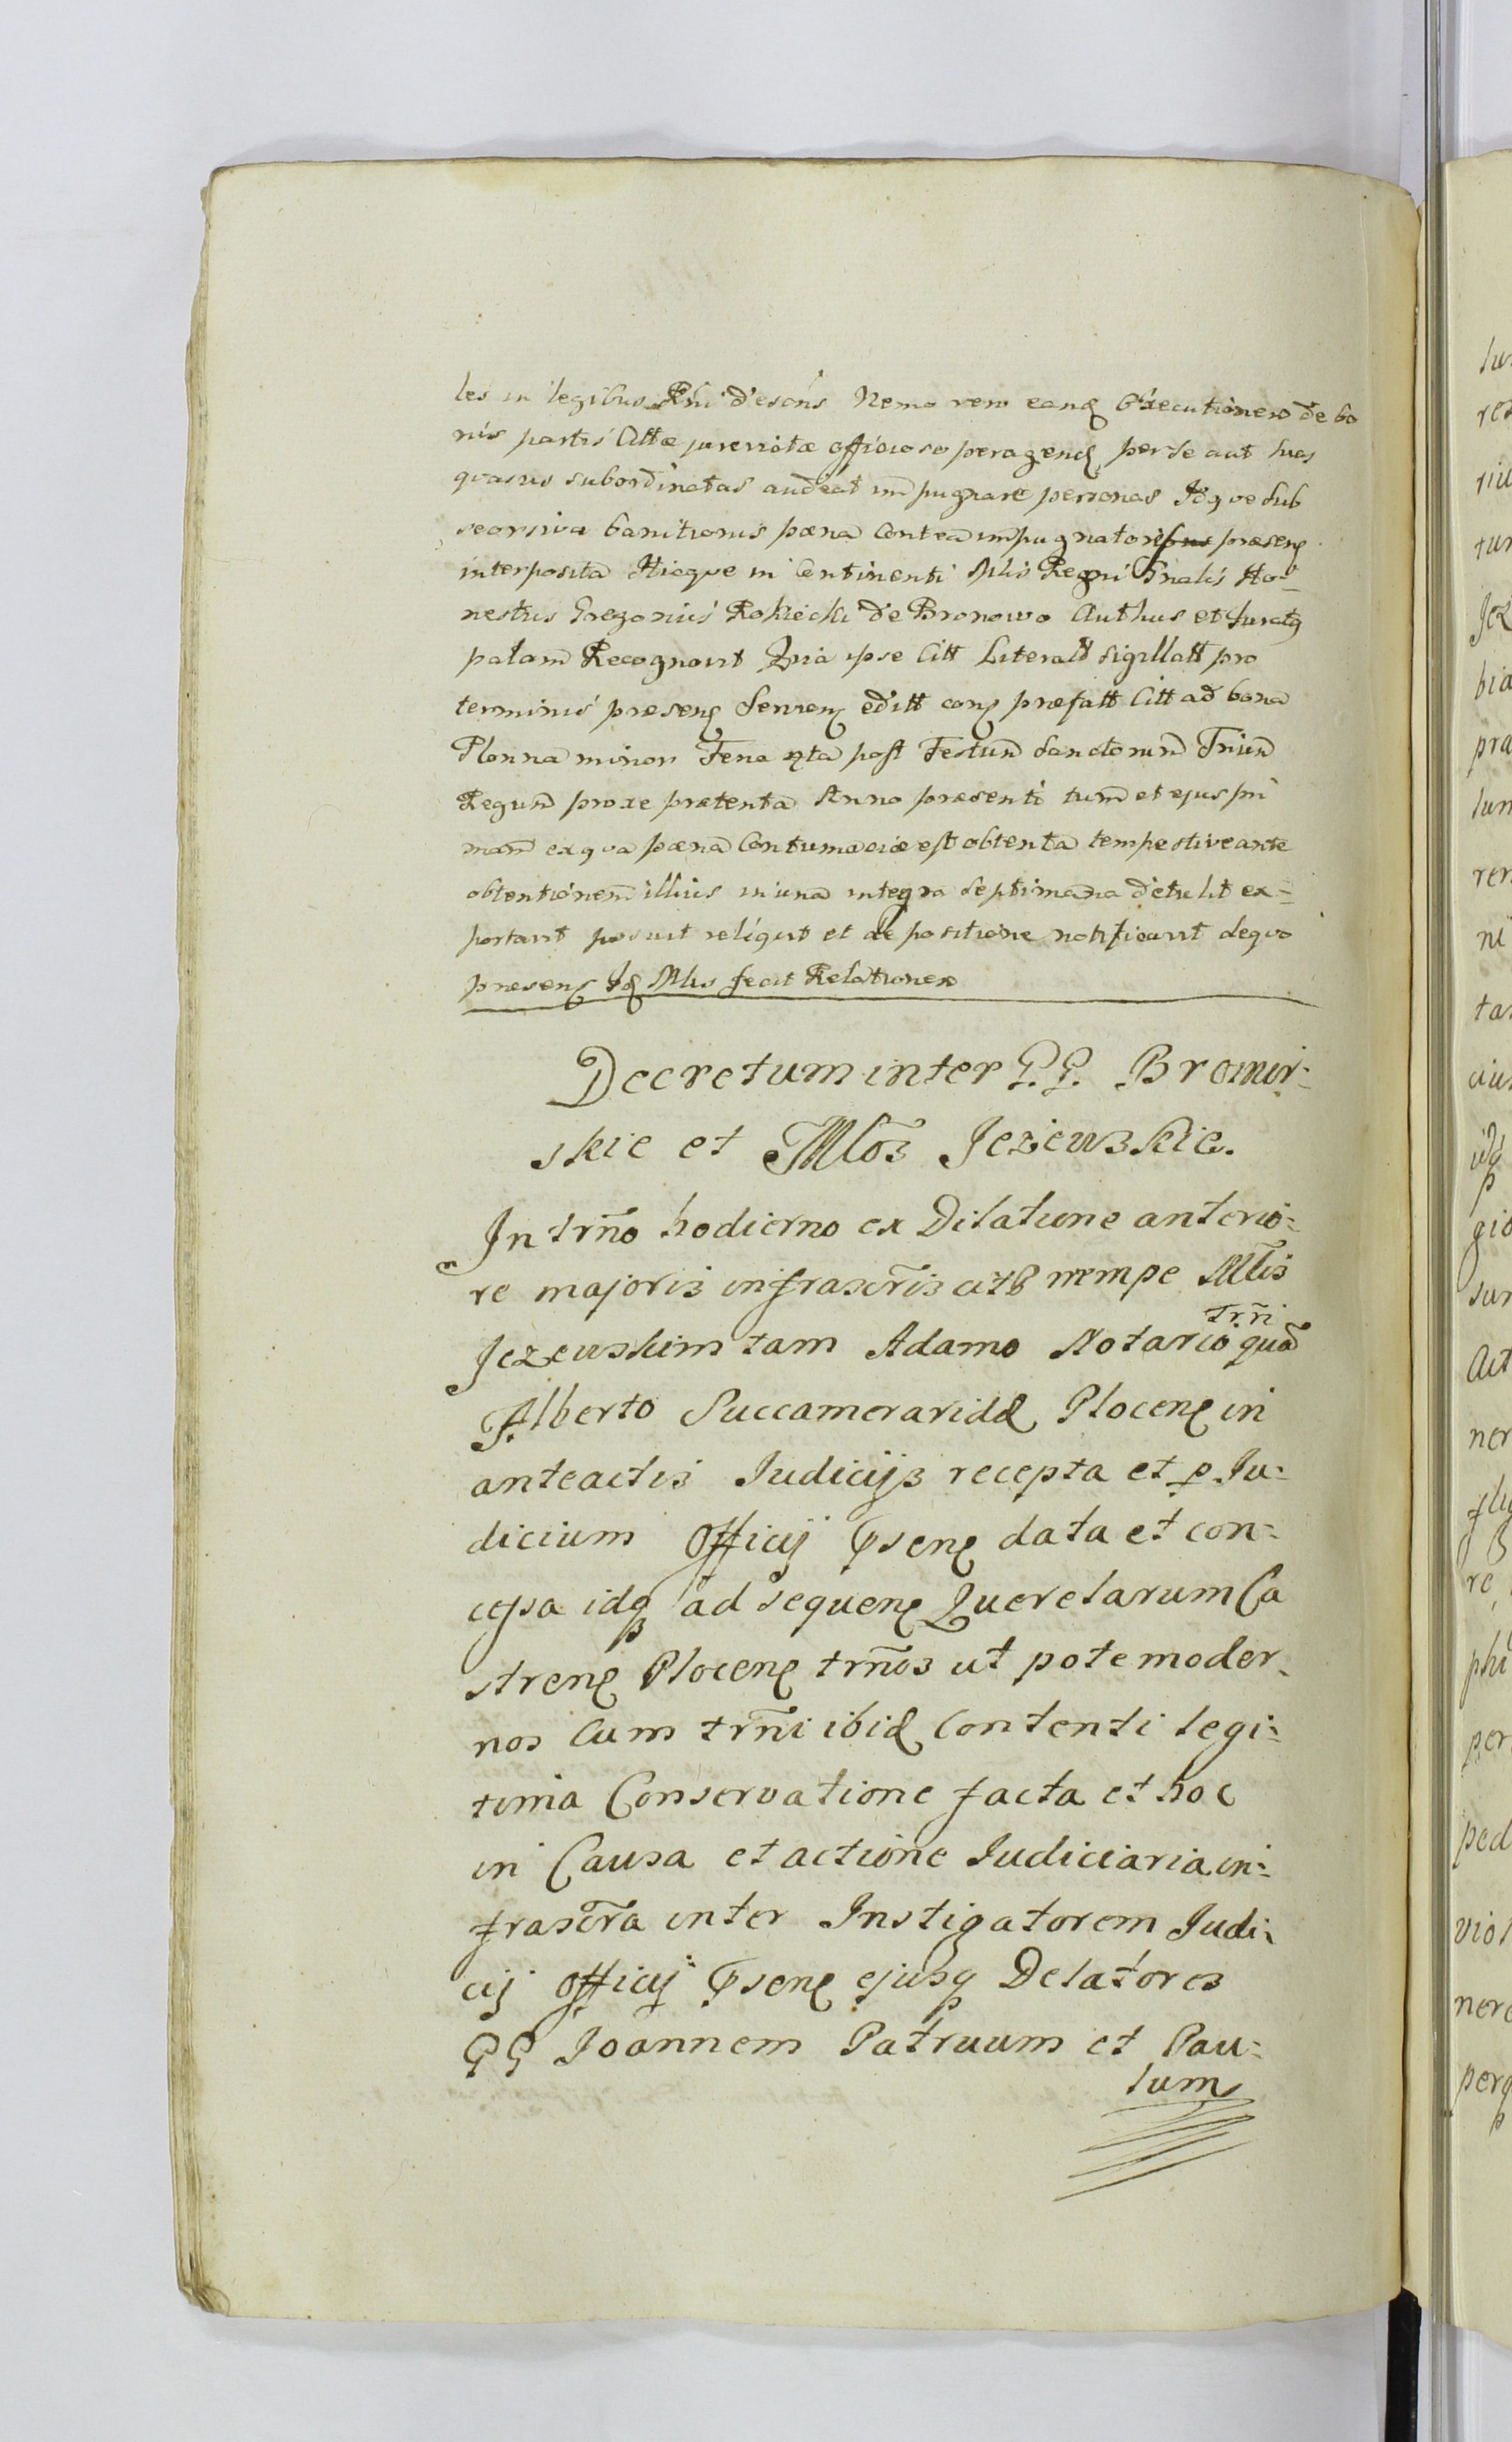 les in legibus Rni descris Nemo vero eanq Exsecutionem de bo
nis partis Cittæ jurevictæ officiose peragenq perse aut suas
quasvis subordinatas audeat impugnare personas Idque sub
seorsiva banitionis pæna Contra impugnatores præsenq
interposita Hicque in Continenti Mlis Regni Gnalis Ho-
nestus Gregorius Rokicki de Bronowo Authus et Juratq
palam Recognovit Quia ipse Citt Literatt sigillatt pro
terminis præsenq servienq editt eonq præfatt Citt ad bona
Plonna minori Feria 4ta post Festum Sanctorum Trium
Regum proxe prætenta Anno præsenti tum et ejus pri
mam ex qva pæna Contumaciæ est obtenta tempestive ante
obtentionem illius in una integra septimana detulit ex-
portavit posuit reliqvit et de positione notificavit deqvo
præsenq Idq Mlis fecit Relationem
Decretum inter G.G. Bromir:
skie et Mlos Jezewskie.
In trno hodierno ex Dilatione anterio:
re majoris infrascris cittt nempe Mlis
Jezewskim tam Adamo Notario Trri qua
Alberto Succameraridd Plocenq in
anteactis Judicijs recepta et p Ju:
dicium Officij Psenq data et con:
cessa idq ad sequenq Querelarum Ca
strenq Plocenq trnos ut pote moder
nos Cum trni ibid Contenti legi:
tima Conservatione facta et hoc
in Causa et actione Judiciaria in:
frascra inter Instigatorem Judi:
cij Officij Psenq ejusq Delatores
GG Joannem Patruum et Pau:
lum